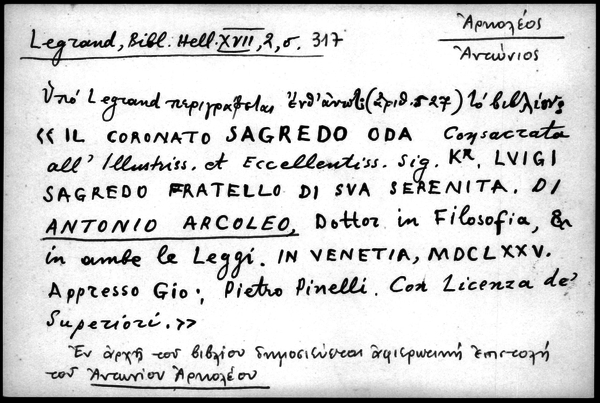 Legrand, Bibl. Hell. XVII, 2, σ. 317
Ἀρκολέος
Ἀντώνιος
Ὑπό Legrand περιγράφεται ἐνθ' ἀνωτ. (ἀριθ. 527) τό βιβλίον:
« IL CORONATO SAGREDO ODA Consacrata
all' Illustriss. et Eccellentiss. Sig. Kr. LVIGI
SAGREDO FRATELLO DI SVA SERENITA. DI
ANTONIO ARCOLEO, Dottor in Filosofia, &
in ambe le Leggi. IN VENETIA, MDCLXXV.
Appresso Gio:, Pietro Pinelli. Con Licenza de'
Superiori. »
Ἐν ἀρχῇ τοῦ βιβλίου δημοσιεύεται ἀφιερωτική ἐπιστολή
τοῦ Ἀντωνίου Ἀρκολέου